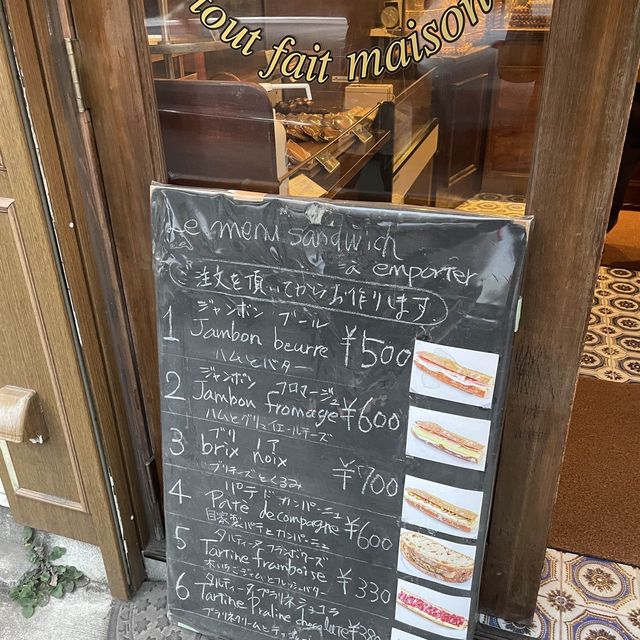 tout fait maison
Le menu sandwich
à emporter
ご注文を頂いてからお作りします。
ジャンボン ブール
1 Jambon beurre ¥500
ハムとバター
ジャンボン フロマージュ
2 Jambon fromage ¥600
ハムとグリュイエールチーズ
ブリ ノア
3 brix noix ¥700
ブリチーズとくるみ
パテ ド カンパーニュ
4 Patè de compagne ¥600
自家製パテとカンパーニュ
タルティーヌ フランボワーズ
5 Tartine framboise ¥330
木いちごジャムとフレッシュバター
タルティーヌ プラリネ ショコラ
6 Tartine Praline chocolate ¥380
プラリネクリームと